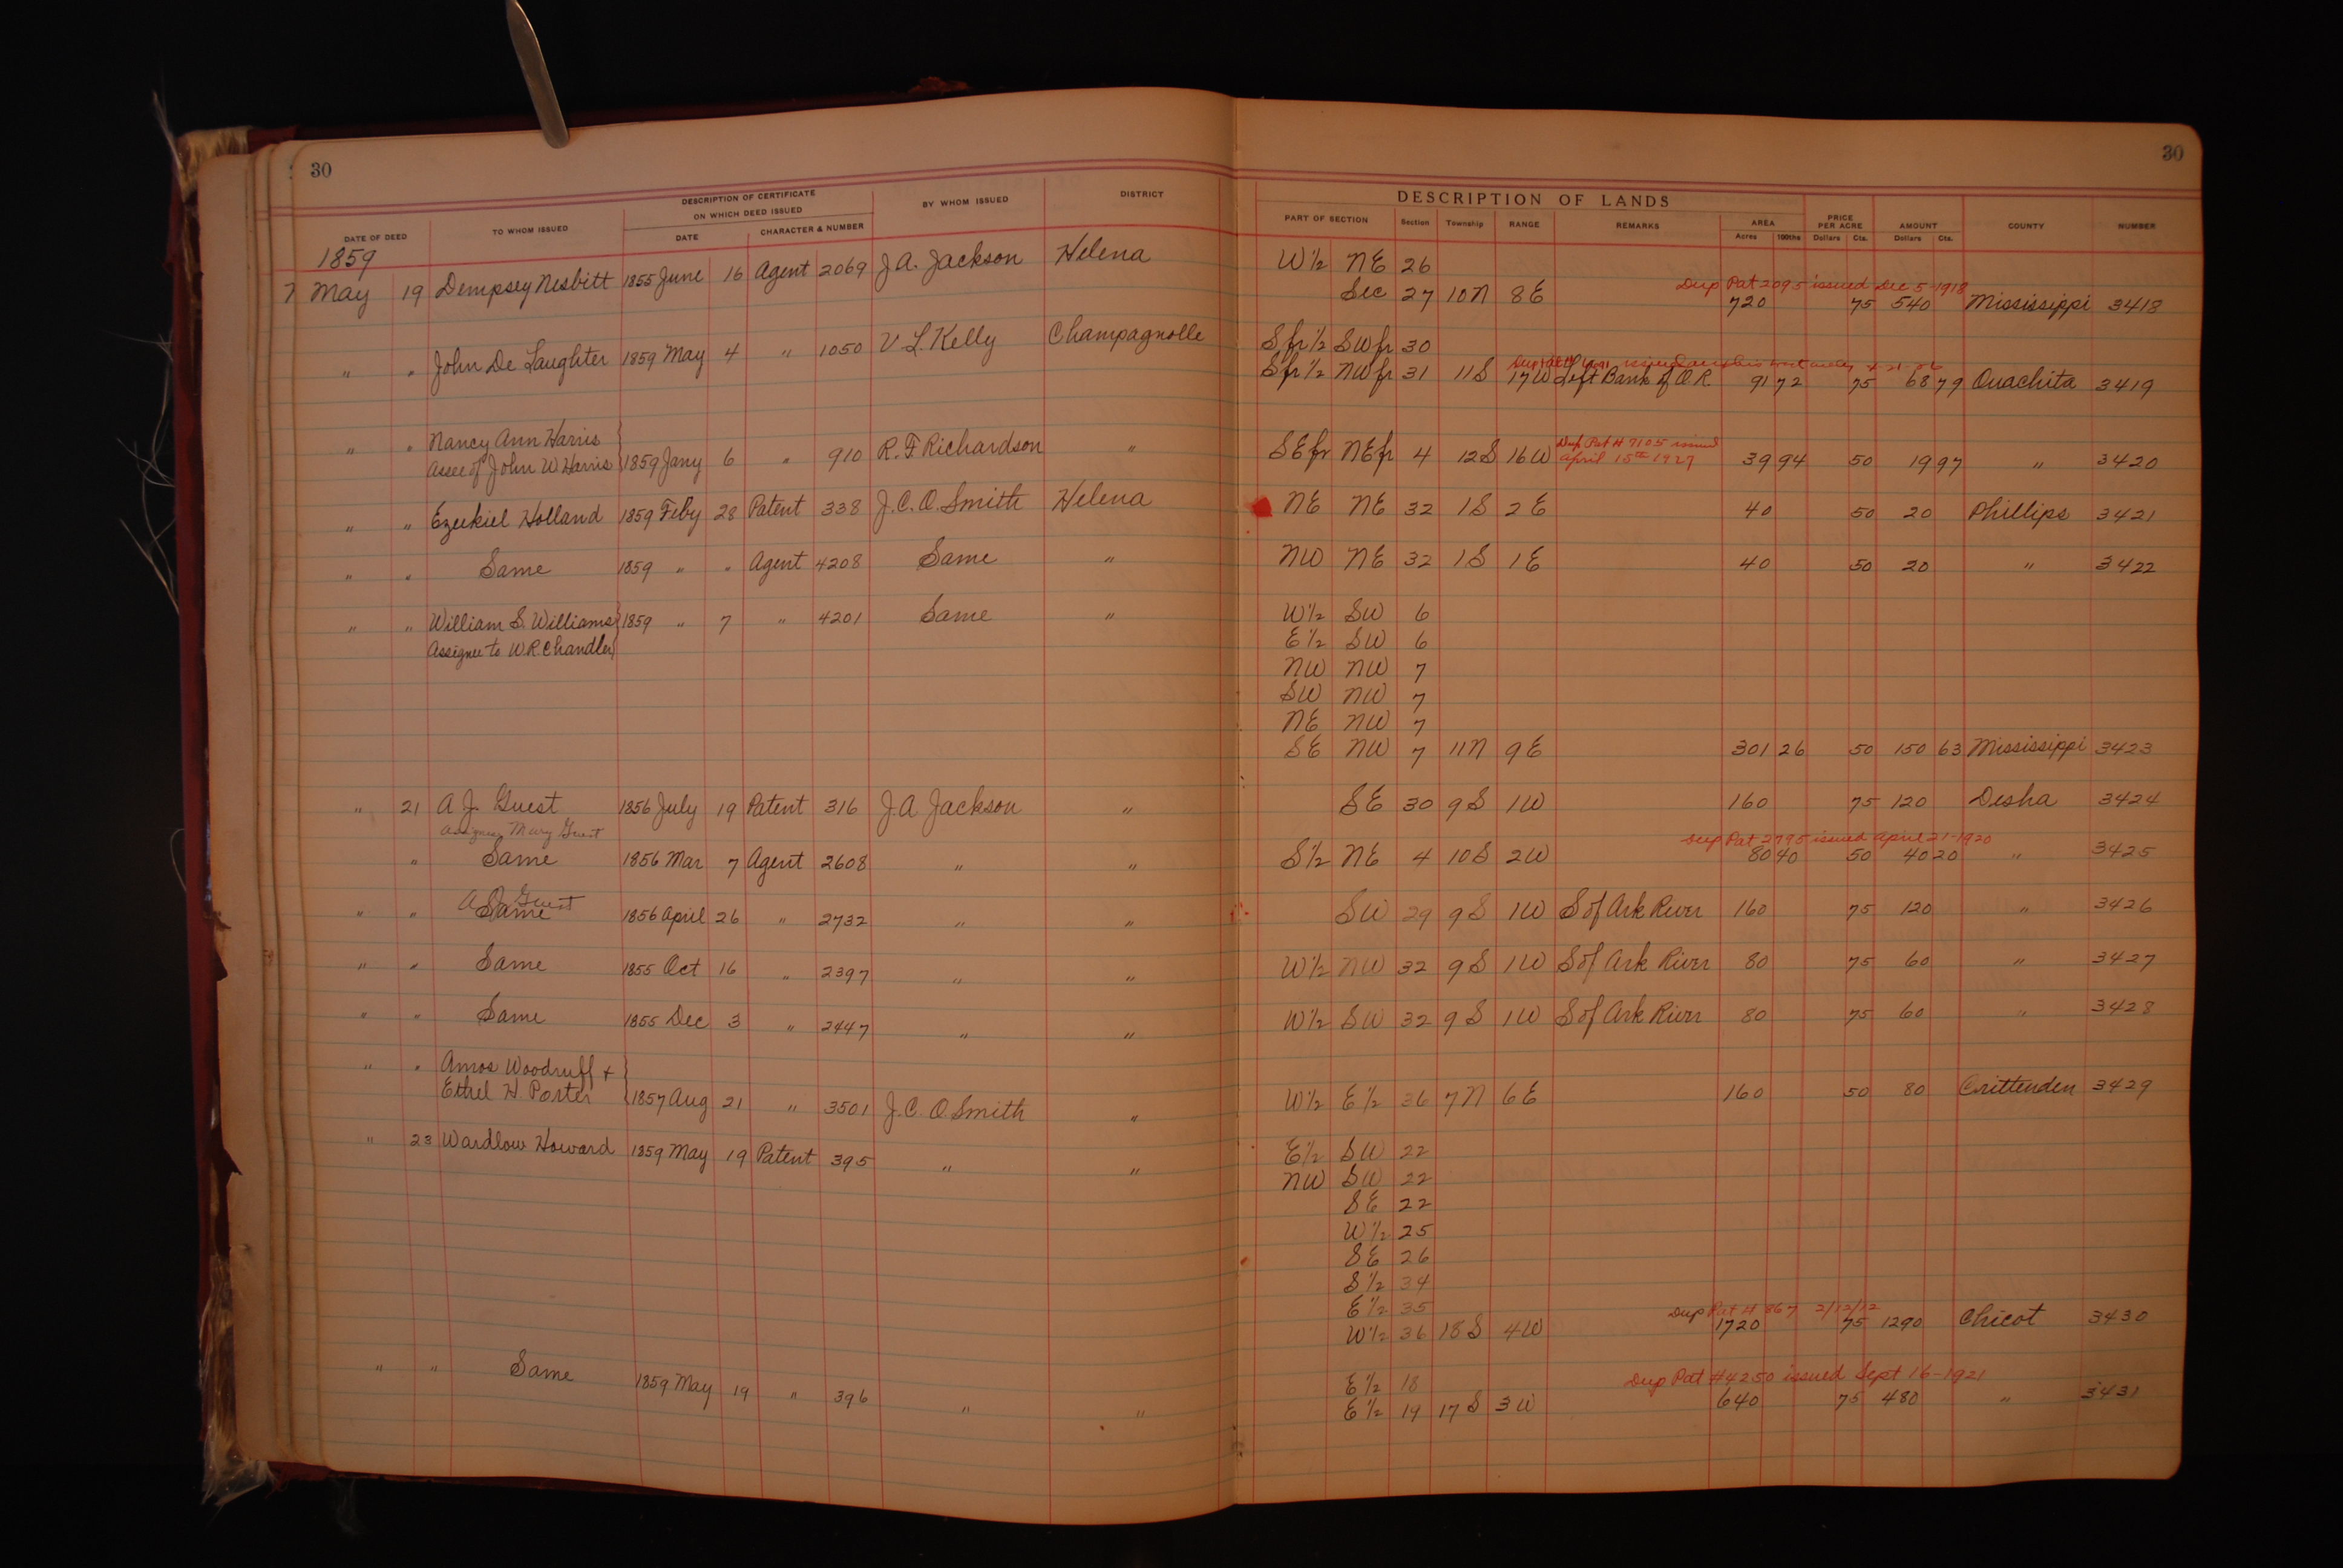 30
DATE OF DEED TO WHOM ISSUED DESCRIPTION OF CERTIFICATE ON WHICH DEED ISSUED DATE CHARACTER & NUMBER BY WHOM ISSUED DISTRICT
1859
7 May 19 Dempsey Nesbitt 1855 June 16 Agent 2069 J A. Jackson Helena
" " John De Laughter 1859 May 4 " 1050 V L Kelly Champagnolle
" " Nancy Ann Harris
Asee of John W Harris 1859 Jany 6 " 910 R. F Richardson "
" " Ezekiel Holland 1859 Feby 28 Patent 338 J. C. O. Smith Helena
" " Same 1859 " " Agent 4208 Same "
" " William S. Williams 1859 " 7 " 4201 Same "
Assignee to W.R. Chandler
" 21 A J. Guest 1856 July 19 Patent 316 J. A Jackson "
Assignee Mary Guest
" Same 1856 Mar 7 Agent 2608 " "
A J Guest
" " Same 1856 April 26 " 2732 " "
" " Same 1855 Oct 16 " 2397 " "
" " Same 1855 Dec 3 " 2447 " "
" " Amos Woodruff +
Ethel H. Porter 1857 Aug 21 " 3501 J. C. O. Smith "
" 23 Wardlow Howard 1859 May 19 Patent 395 " "
" " Same 1859 May 19 " 396 " "
30
DESCRIPTION OF LANDS
PART OF SECTION Section Township RANGE REMARKS AREA Acres 100ths PRICE PER ACRE Dollars Cts. AMOUNT Dollars Cts. COUNTY NUMBER
W½ NE 26
Dup Pat 2095 issued Dec 5-1918
Sec 27 10N 8E 720 75 540 Mississippi 3418
S fr ½ SW fr 30
S fr ½ NW fr 31 11S 17W Left Bank of O R 91 72 75 68 79 Ouachita 3419
Dup Pat # 7105 issued
April 15th 1927
SE fr NE fr 4 12S 16W 39 94 50 19 97 " 3420
NE NE 32 1S 2E 40 50 20 Phillips 3421
NW NE 32 1S 1E 40 50 20 " 3422
W½ SW 6
E½ SW 6
NW NW 7
SW NW 7
NE NW 7
SE NW 7 11N 9E 301 26 50 150 63 Mississippi 3423
SE 30 9S 1W 160 75 120 Desha 3424
Dup Pat 2795 issued April 21-1920
S½ NE 4 10S 2W 80 40 50 40 20 " 3425
SW 29 9S 1W S of Ark River 160 75 120 " 3426
W½ NW 32 9S 1W S of Ark River 80 75 60 " 3427
W½ SW 32 9S 1W S of Ark River 80 75 60 " 3428
W½ E½ 36 7N 6E 160 50 80 Crittenden 3429
E½ SW 22
NW SW 22
SE 22
W½ 25
SE 26
S½ 34
E½ 35
Dup Pat # 867 2/12/12
W½ 36 18S 4W 1720 75 1290 Chicot 3430
Dup Pat #4250 issued Sept 16-1921
E½ 18
E½ 19 17S 3W 640 75 480 " 3431